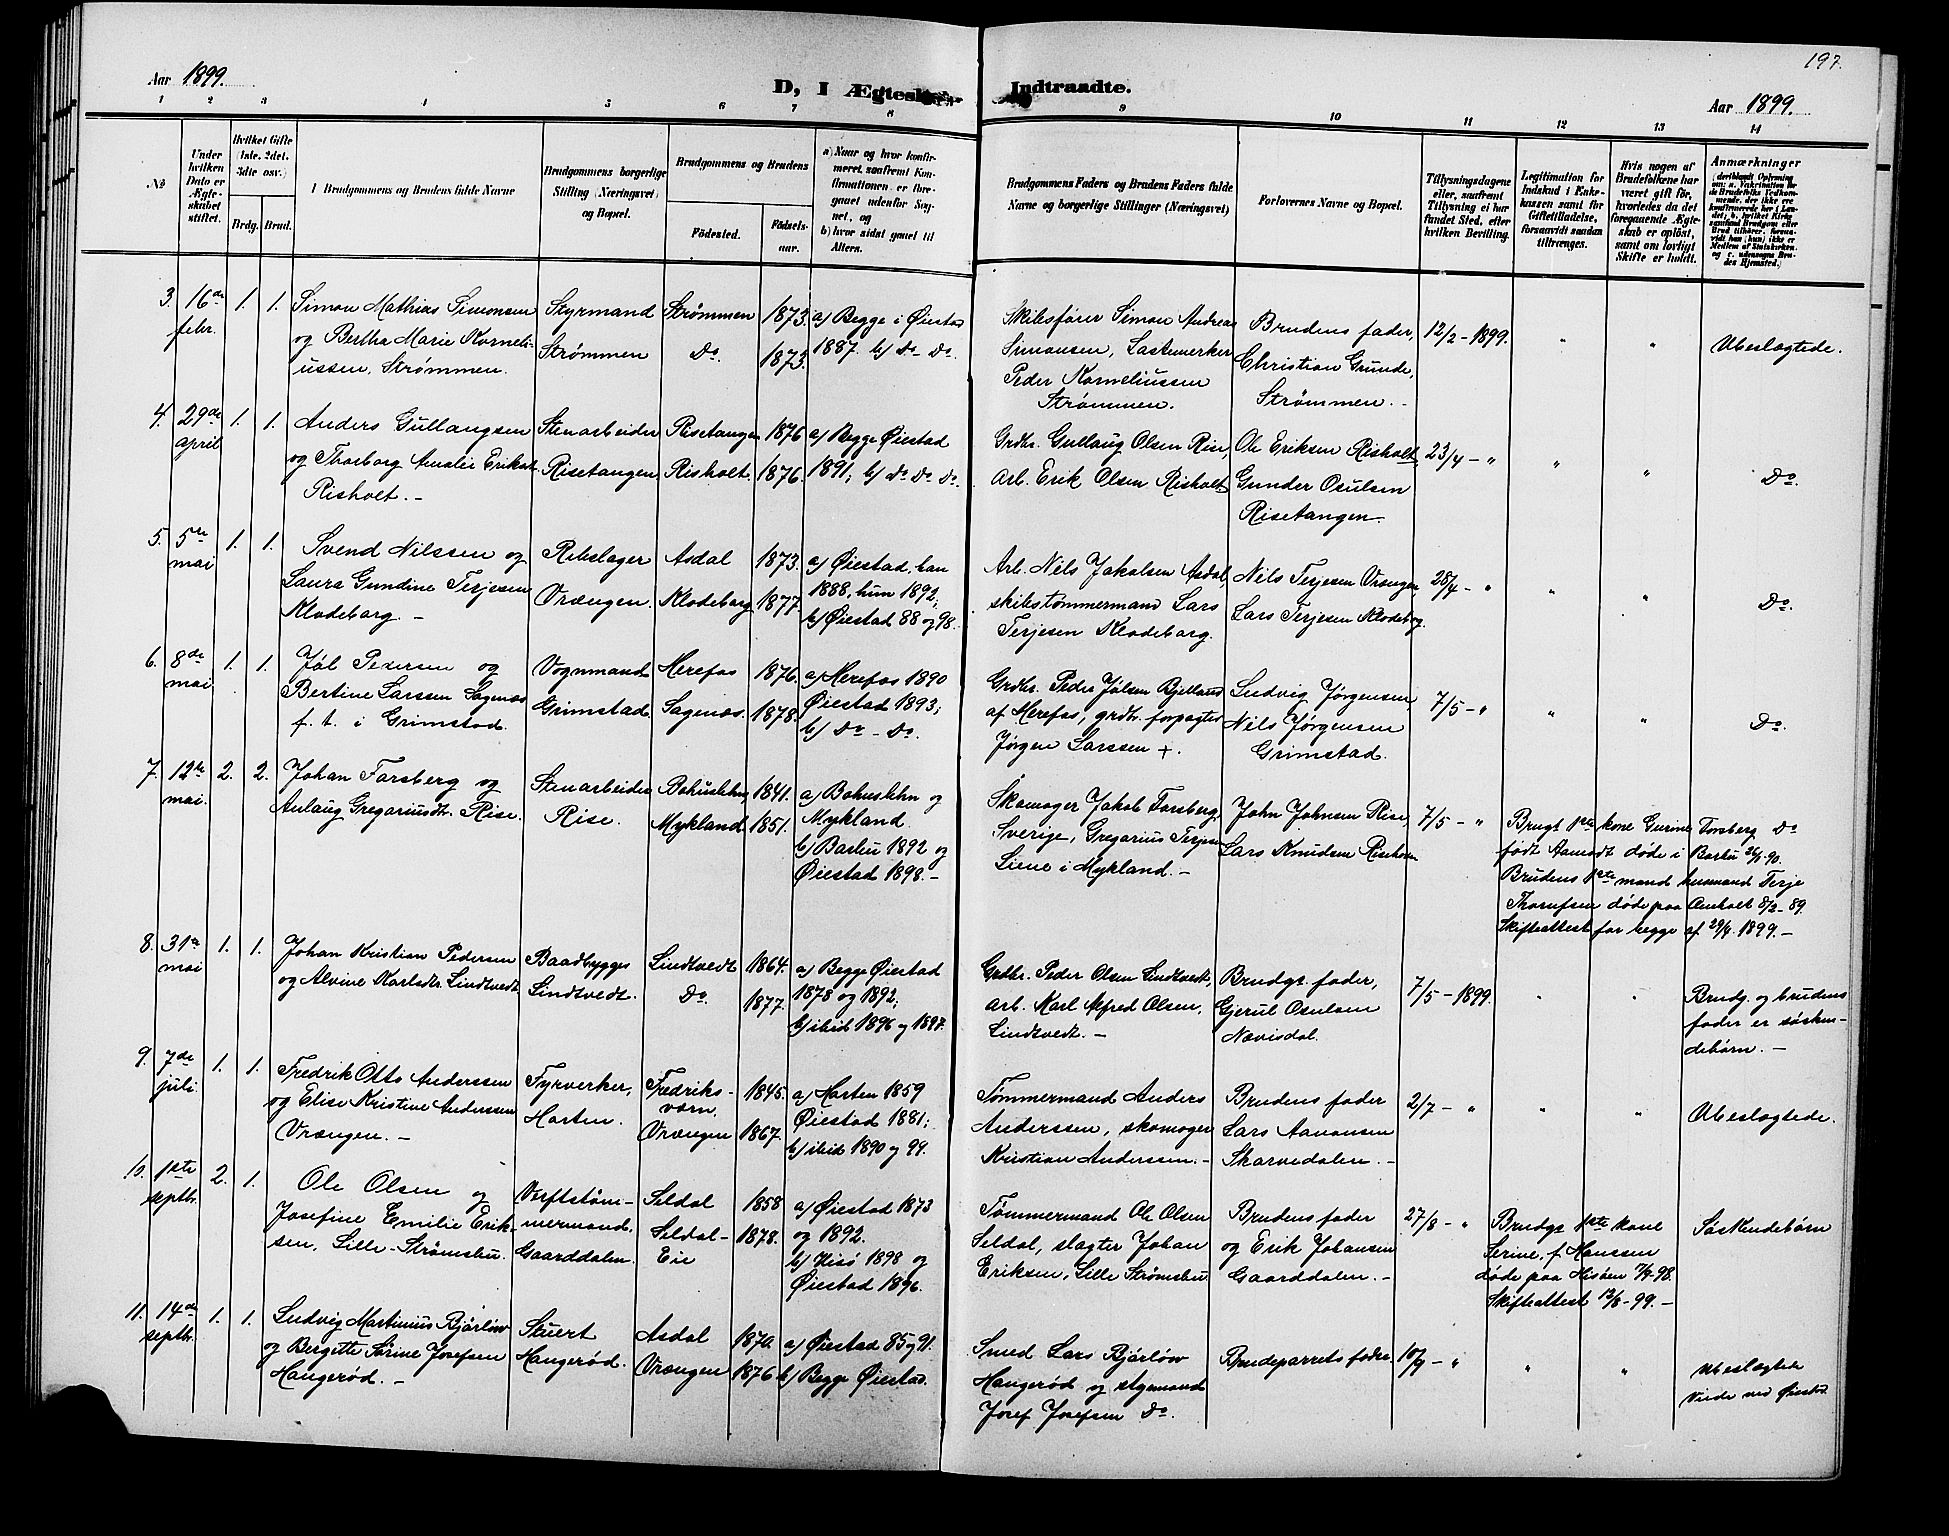 197.
Aar 1899.
D, I Ægtesk
Indtraadte.
Aar 1899.
1 2 3 4 5 6 7 8 9 10 11 12 13 14
№
Under hvilken Dato er Ægteskabet stiftet.
Hvilket Gifte (1ste, 2det, 3die osv.)
Brdg. Brud.
Brudgommens og Brudens fulde Navne
Brudgommens borgerlige Stilling (Næringsvei) og Bopæl.
Brudgommens og Brudens
Födested.
Födselsaar.
a) Naar og hvor konfirmeret, saafremt Konfirmationen er foregaaet udenfor Sognet, og
b) hvor sidst gaaet til Alters.
Brudgommens Faders og Brudens Faders fulde Navne og borgerlige Stillinger (Næringsvei)
Forlovernes Navne og Bopæl.
Tillysningsdagene eller, saafremt Tillysning ei har fundet Sted, efter hvilken Bevilling.
Legitimation for Indskud i Enkekassen samt for Giftetilladelse, forsaavidt saadan tiltrænges.
Hvis nogen af Brudefolkene har været gift för, hvorledes da det foregaaende Ægteskab er oplöst, samt om lovligt Skifte er holdt.
Anmærkninger
3. 16de febr. 1. 1.
Simon Mathias Simonsen
og Bertha Marie Korneli-
ussen, Strømmen.
Styrmand
Strømmen
Strømmen 1873.
Do. 1873.
a) Begge i Øiestad
1887. b) Do Do.
Skibsfører Simon Andreas
Simonsen, Lastemerker
Peder Korneliussen
Strømmen.
Brudens fader,
Christian Grunde,
Strømmen.
12/2 - 1899. " "
Ubeslægtede.
4. 29de april 1. 1.
Anders Gullaugsen
og Thorborg Amalie Eriksdt.
Risholt. -
Stenarbeider
Risetangen
Risetangen 1876
Risholt. 1876.
a) Begge Øiestad
1891; b) Do Do Do.
Grdbr. Gullaug Olsen Rise,
Arb. Erik Olsen Risholt
Ole Eriksen Risholt
Gunder Osulsen
Risetangen.
23/4 - " " "
Do.
5. 5te mai 1. 1.
Svend Nilssen og
Laura Gundine Terjesen
Klodeborg. -
Rebslager
Vrængen.
Asdal 1873.
Klodeborg 1877.
a) Øiestad, han
1888, hun 1892;
b) Øiestad 88 og 98.
Arb. Nils Jakobsen Asdal,
skibstømmermand Lars
Terjesen Klodeborg.
Nils Terjesen Vrængen
Lars Terjesen Klodeborg.
28/4 - " " "
Do.
6. 8de mai 1. 1.
Jøl Pedersen og
Bertine Larssen Sagenæs
f. t. i Grimstad.
Vognmand
Grimstad.
Herefos 1876.
Sagenæs. 1878.
a) Herefos 1890
Øiestad 1893;
b) Do - Do.
Grdbr. Peder Jølsen Bjelland
af Herefos, grdbr. forpagter
Jørgen Larssen +.
Ludvig Jørgensen,
Nils Jørgensen
Grimstad.
7/5 - " " "
Do.
7. 12te mai. 2. 2.
Johan Forsberg og
Anlaug Gregariusdtr. Rise.
Stenarbeider
Rise.
Bohuslehn 1841.
Mykland 1851.
a) Bohuslehn og
Mykland.
b) Barbu 1892 og
Øiestad 1898. -
Skomager Jakob Forsberg,
Sverige, Gregarius Terjesen
Liene i Mykland. -
John Johnsen Rise,
Lars Knudsen Risehaven
7/5 - "
Brugt 1ste kone Gurine Forsberg
født Aamodt døde i Barbu 26/1-90.
Brudens 1ste mand husmand Terje
Thorufsen døde paa Omholt 8/2-89.
Skifteattest for begge af 29/4 1899. -
Do
8. 31te mai 1. 1.
Johan Kristian Pedersen
og Alvine Karlsdtr. Lindtvedt.
Baadbygger
Lindtvedt.
Lindtvedt 1864.
Do. 1877.
a) Begge Øiestad
1878 og 1892;
b) ibid 1896 og 1897.
Grdbr. Peder Olsen Lindtvedt,
arb. Karl Alfred Olsen,
Lindtvedt. -
Brudgs. fader,
Gjerul Osulsen
Nævisdal.
7/5 - 1899. " "
Brudg. og brudens
fader er søsken-
debørn. -
9. 7de juli 1. 1.
Fredrik Otto Anderssen
og Elise Kristine Anderssen
Vrængen. -
Fyrverker,
Horten.
Fredriks-
værn, 1845.
Vrængen 1867.
a) Horten 1859
Øiestad 1881;
b) ibid 1890 og 99.
Tømmermand Anders
Anderssen, skomager
Kristian Anderssen. -
Brudens fader
Lars Aanonsen
Skarvedalen. -
2/7 - " " "
Ubeslægtede.
10. 1ste septbr. 2. 1.
Ole Olsen og
Josefine Emilie Erik-
sen, Lille-Strømsbu.
Verftstøm-
mermand,
Gaarddalen.
Seldal 1858
Seldal- 1878.
Eie
a) Øiestad 1873
og 1892.
b) Hisø 1898 og
Øiestad 1896.
Tømmermand Ole Olsen
Seldal, slagter Johan
Eriksen, Lille Strømsbu
Brudens fader
og Erik Johansen
Gaarddalen. -
27/8 - "
Brudgs 1ste kone
Serine, f. Hanssen
døde paa Hisøen 7/9-98.
Skifteattest 12/8-99. -
Søskendebørn
11. 14de septbr. 1. 1.
Ludvig Martinius Bjørløw
og Bergitte Sørine Josefsen
Haugerød. -
Stuert
Haugerød.
Asdal 1870.
Vrængen 1876
a) Øiestad 85 og 91.
b) Begge Øiestad.
Smed Lars Bjørløw
Haugerød og styrmand
Josef Josefsen Do.
Brudeparrets fædre
10/9 - " " "
Ubeslægtede
Viede ved Øiestad